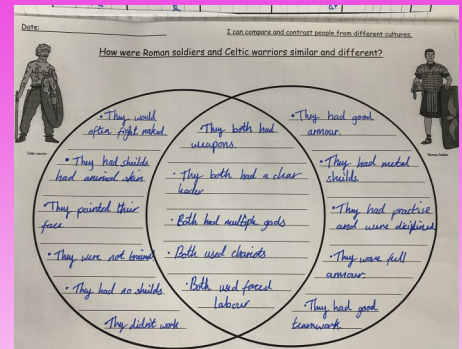 Date:
I can compare and contrast people from different cultures.
How were Roman soldiers and Celtic warriors similar and different?
Celtic warrior
Roman Soldier
• They would
often fight naked.
• They had sheilds
had animal skin
• They painted thier
face
• They were not
• They had no shields.
They didn't work
• They both had
weapons.
• They both had a clear
leader
• Both had multiple gods
• Both used chariots
• Both used forced
labour
• They had good
armour.
• They had metal
sheilds.
• They had practise
and were
• They wore full
armour.
• They had good
teamwork.